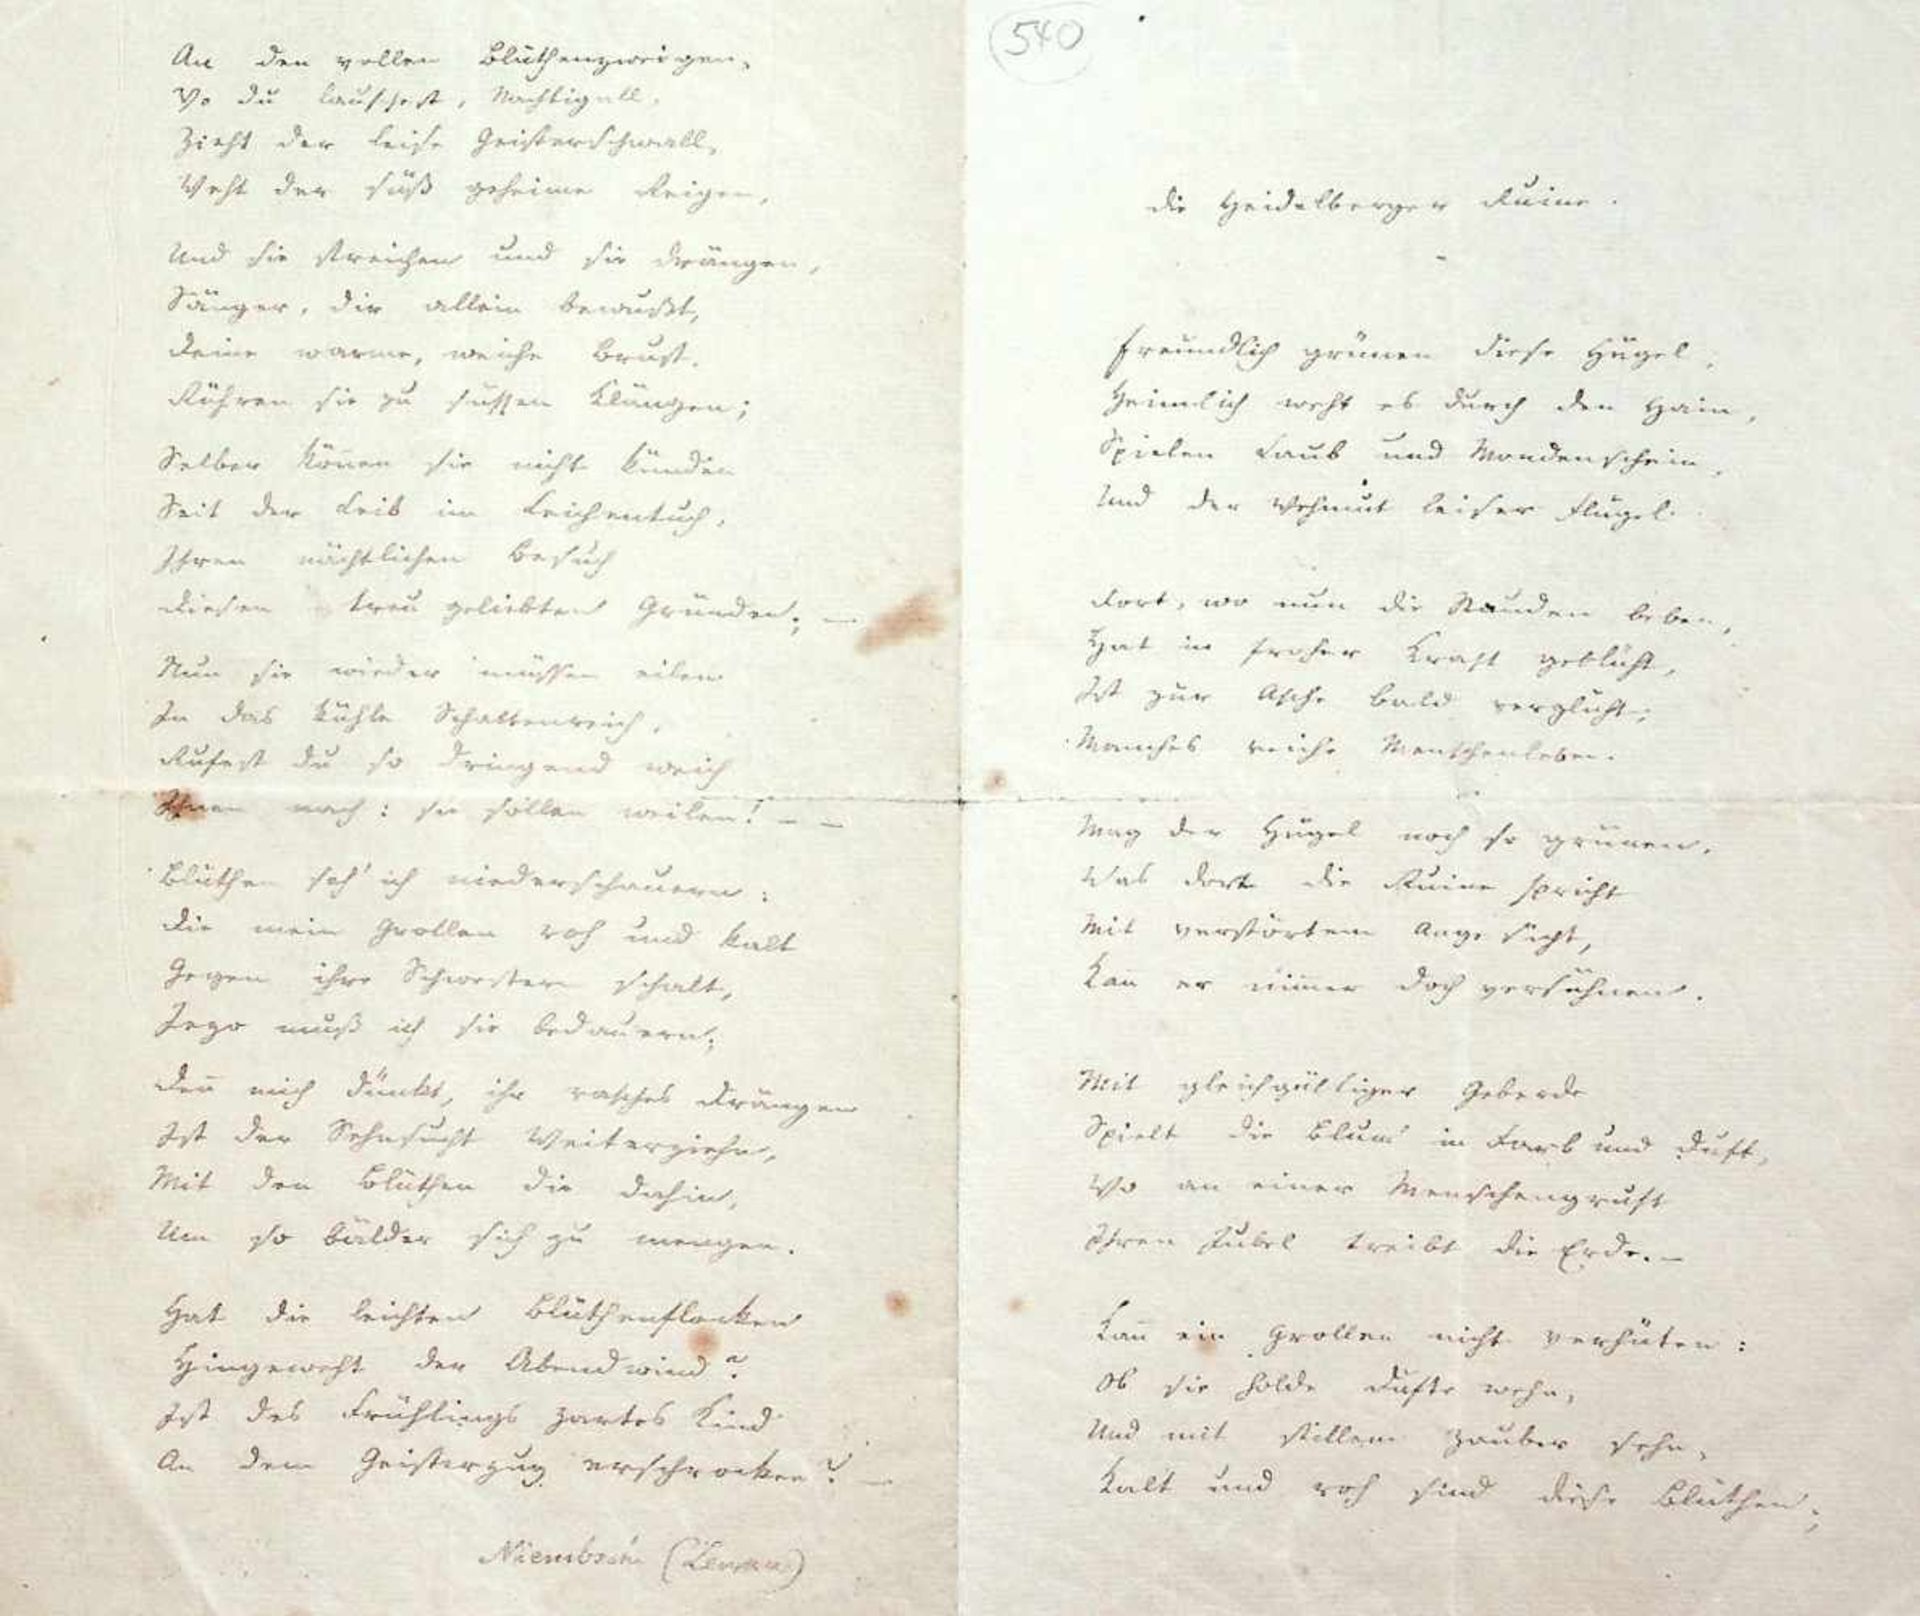 An den vollen Blüthenzweigen,
Wo du lauschest, Nachtigall,
Zieht der leise Geisterschwall,
Weht der süß geheime Reigen,
Und sie streichen und sie drängen,
Sänger, dir allein bewußt,
Deine warme, weiche Brust,
Rühren sie zu süssen Klängen;
Selber kön̄en sie nicht künden
Seit der Leib im Leichentuch,
Ihren nächtlichen Besuch
Diesen treu geliebten Gründen; —
Nun sie wieder müssen eilen
In das kühle Schattenreich,
Rufest du so dringend weich
Ihnen nach: sie sollen weilen! — —
Blüthen seh' ich niederschauern:
Die mein Grollen roh und kalt
Gegen ihre Schwestern schalt,
Jezo muß ich sie bedauern;
Den̄ mich dünkt, ihr rasches Drängen
Ist der Sehnsucht Weiterziehn,
Mit den Blüthen die dahin,
Um so bälder sich zu mengen.
Hat die leichten Blüthenflocken
Hingeweht der Abendwind?
Ist des Frühlings zartes Kind
An dem Geisterzug erschrocken? —
Niembsch (Lenau)
540
Die Heidelberger Ruine.
Freundlich grünen diese Hügel,
Heimlich weht es durch den Hain,
Spielen Laub und Mondenschein,
Und der Wehmut leiser Flügel.
Dort, wo nun die Stauden beben,
Hat in froher Kraft geblüht,
Ist zur Asche bald verglüht;
Manches reiche Menschenleben.
Mag der Hügel noch so grünen,
Was dort die Ruine spricht
Mit verstörtem Angesicht,
Kan̄ er nim̄er doch versühnen.
Mit gleichgültiger Geberde
Spielt die Blum' in Farb und Duft,
Wo an einer Menschengruft
Ihren Jubel treibt die Erde. —
Kan̄ ein Grollen nicht verhüten:
Ob sie holde Düfte wehn,
Und mit stillem Zauber sehn,
Kalt und roh sind diese Blüthen;